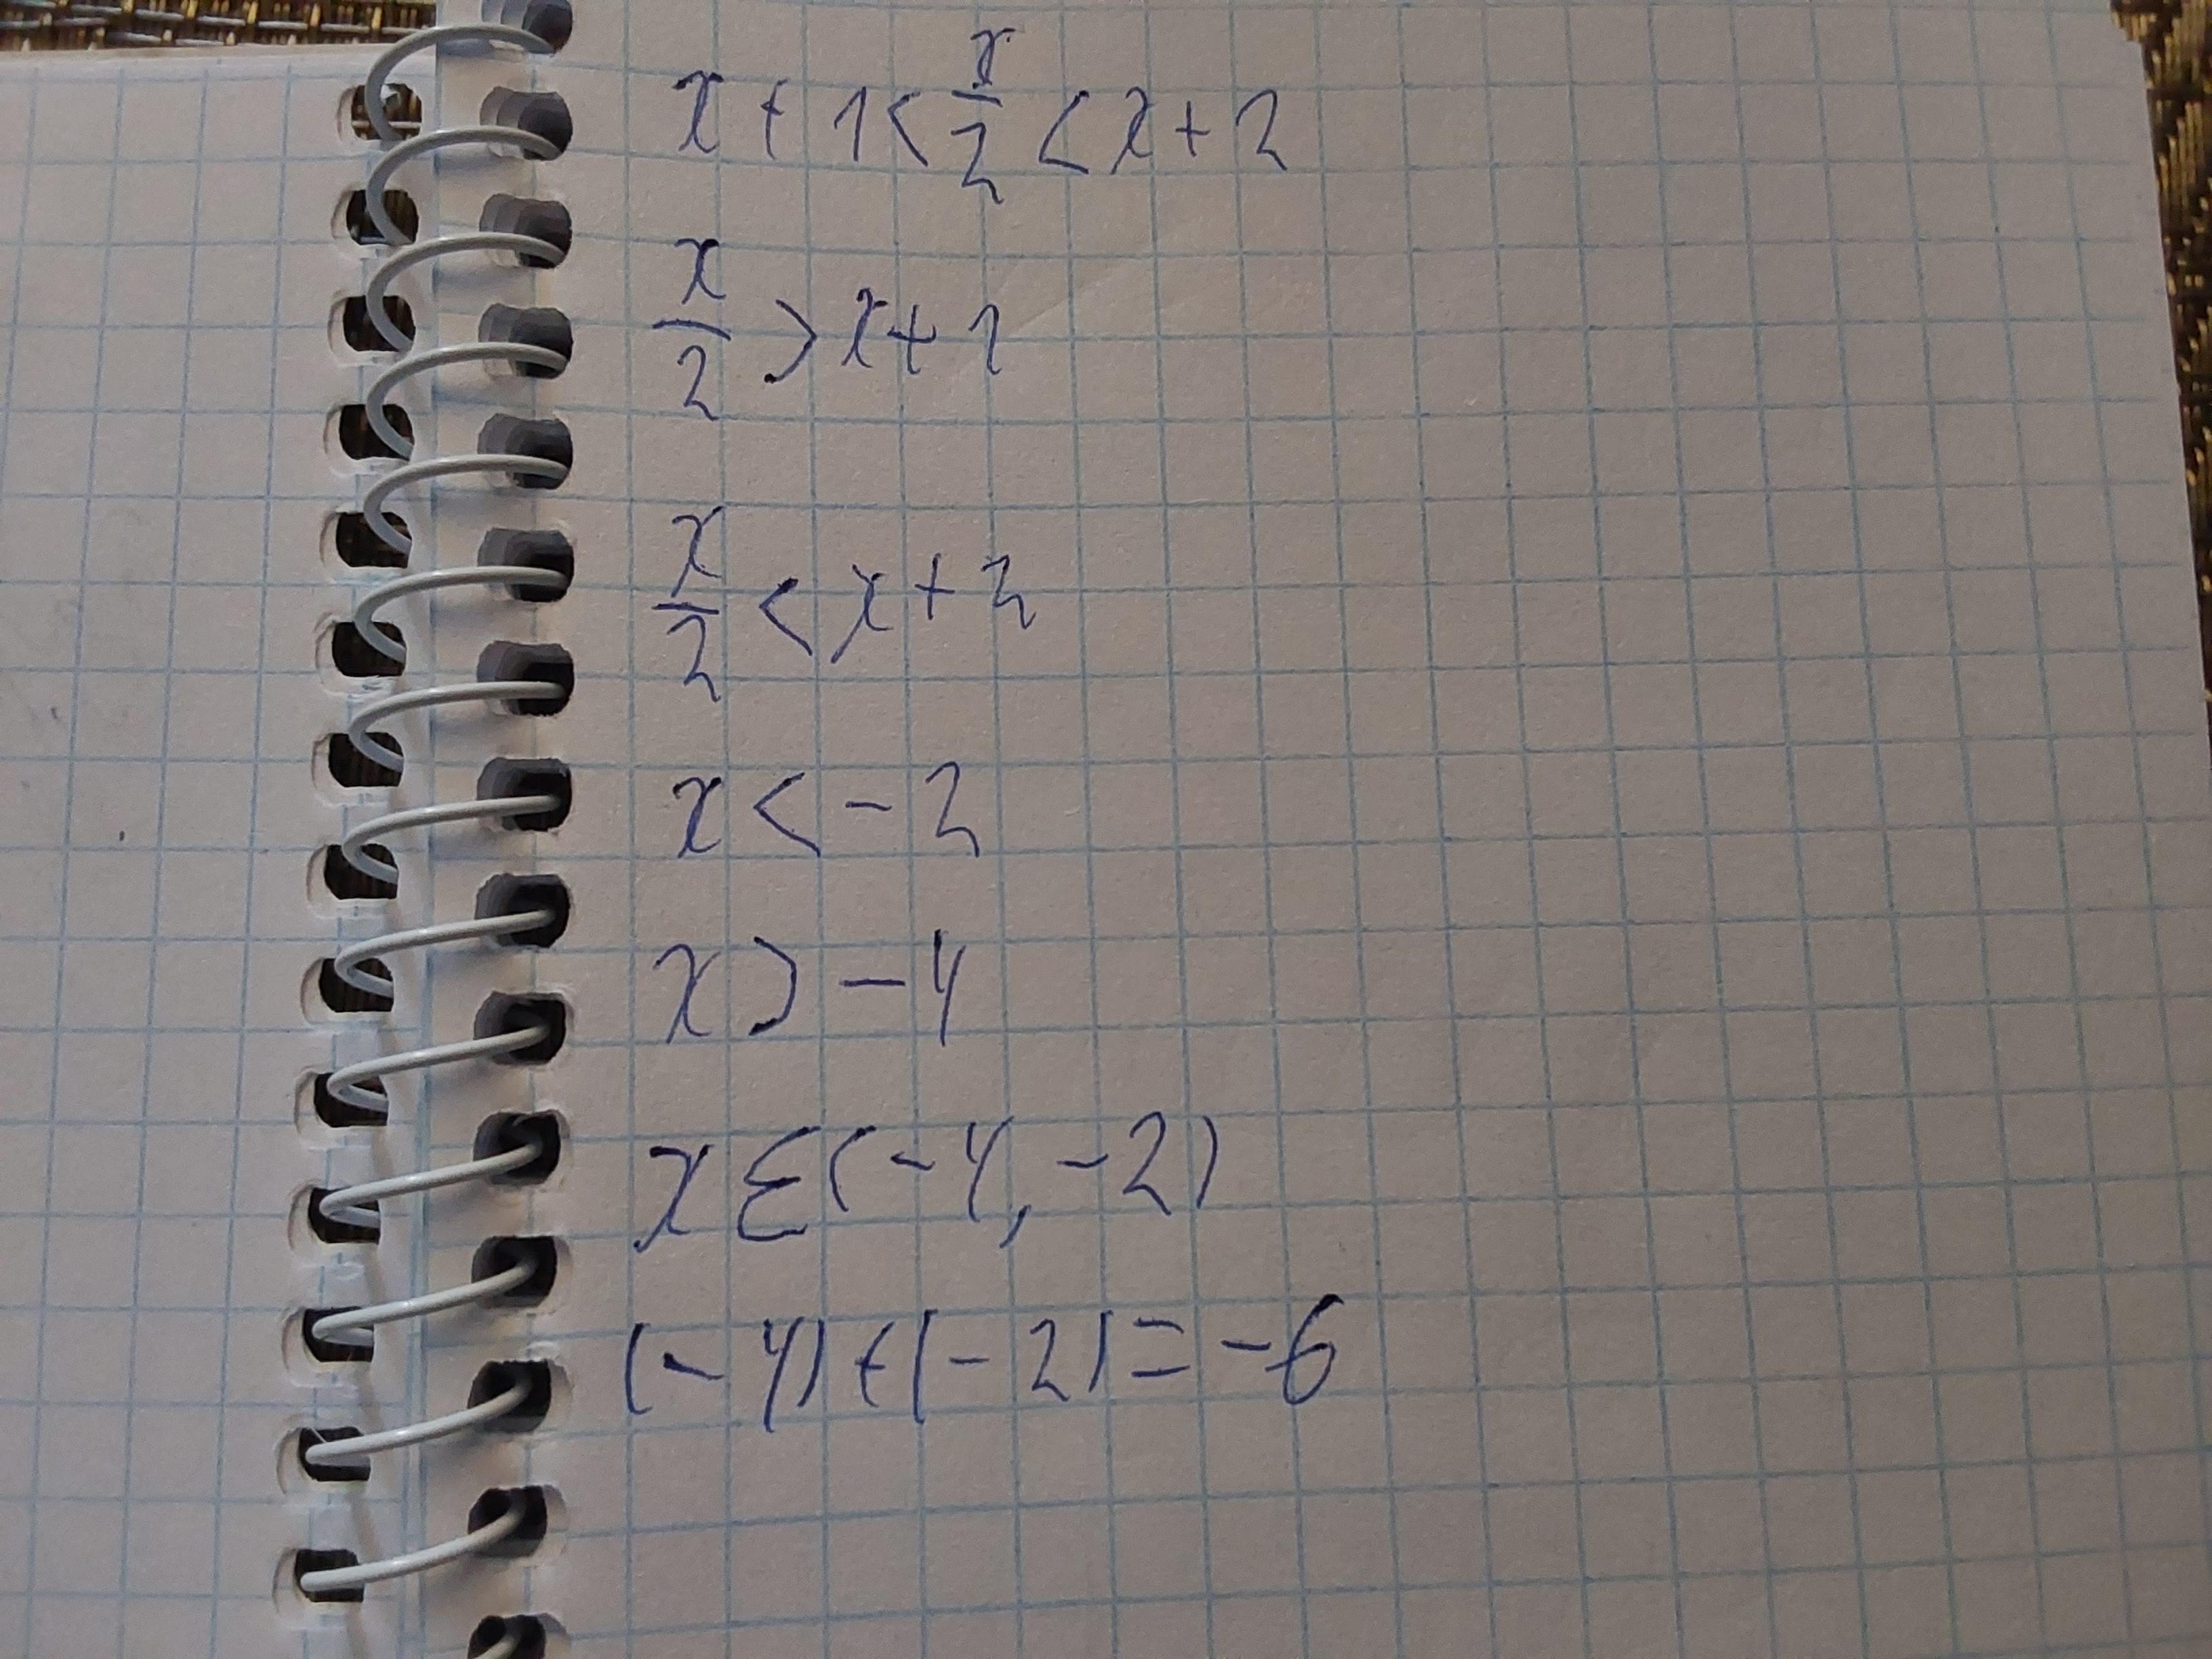 x + 1 < x/2 < x + 2
x/2 > x + 1
x/2 < x + 2
x < - 2
x > - 4
x ∈ (-4, -2)
(-4) + (-2) = -6